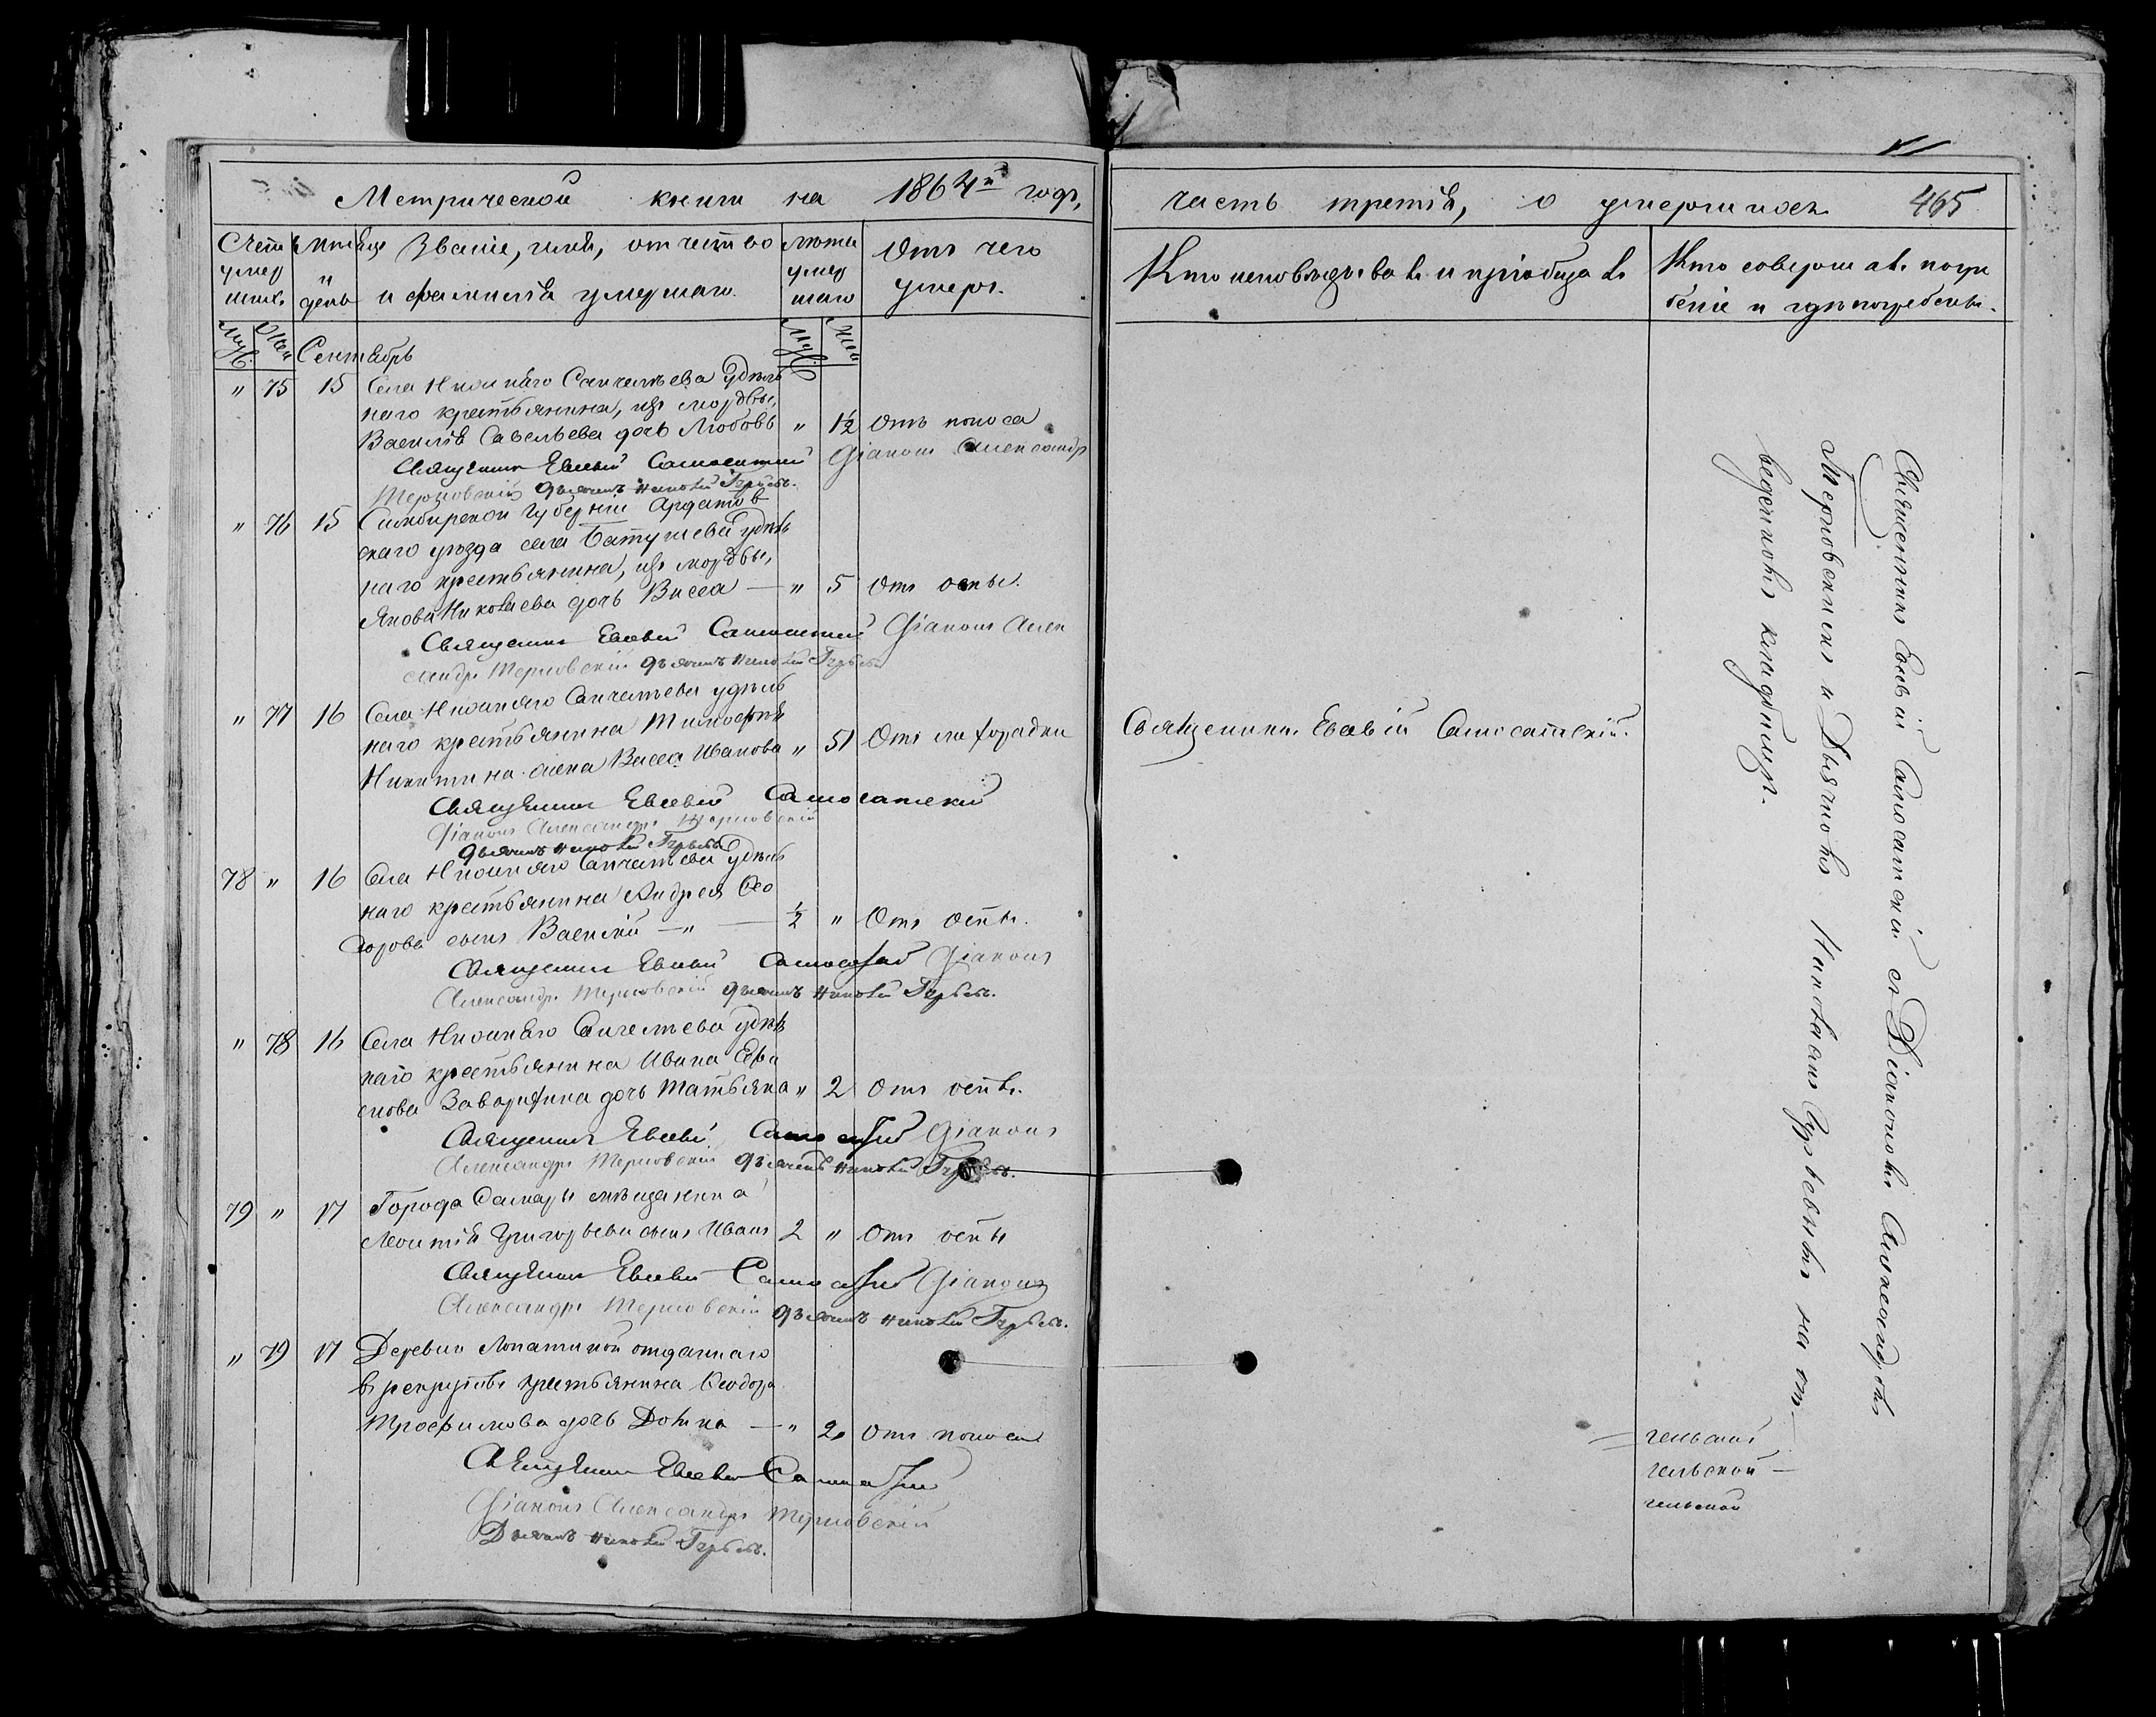 Метрической книги на 1864й годъ,
Счетъ умер шихъ
Мѣсяцъ и день
Званіе, имя, отчество и фамилія умершаго.
Лѣта умер шаго
Отъ чего умеръ.
Муж. Жен. Муж. Жен.
Сентябрь
" 75 15 Села Нижняго Санчелѣева удѣль
наго крестьянина, изъ мордвы,
Василія Савельева дочь Любовь " 1½ Отъ поноса
Священникъ Евсевій Самосатскій Діаконъ Александръ
Терновскій Дьячекъ Николай
" 76 15 Симбирской губерніи Ардатов
скаго уѣзда села Батушева удѣль
наго крестьянина, изъ мордвы,
Якова Николаева дочь Васса — " 5 Отъ оспы.
Священникъ Евсевій Самосатскій Діаконъ Алек
сандръ Терновскій Дьячекъ Николай
" 77 16 Села Нижняго Санчелѣева удѣль
наго крестьянина Тимофея
Никитина жена Васса Иванова " 51 Отъ лихорадки
Священникъ Евсевій Самосатскій
Діаконъ Александръ Терновскій
Дьячекъ Николай
78 " 16 Села Нижняго Санчелѣева удѣль
наго крестьянина Андрея Ѳео
дорова сынъ Василій — " — ½ " Отъ оспы.
Священникъ Евсевій Самосатскій Діаконъ
Александръ Терновскій Дьячекъ Николай
" 78 16 Села Нижняго Санчелѣева удѣль
наго крестьянина Ивана
Заварихина дочь Татьяна " 2 Отъ оспы.
Священникъ Евсевій Самосатскій Діаконъ
Александръ Терновскій Дьячекъ Николай
79 " 17 Города Самары мѣщанина
Леонтія Григорьева сынъ Иванъ 2 " Отъ оспы
Священникъ Евсевій Самосатскій Діаконъ
Александръ Терновскій Дьячекъ Николай
" 79 17 Деревни Лопатиной отданнаго
въ рекруты крестьянина Ѳеодора
Трофимова дочь Домна — " 2 Отъ поноса
Священникъ Евсевій Самосатскій
Діаконъ Александръ Терновскій
Дьячекъ Николай
часть третія, о умершихъ. 465
Кто исповѣдывалъ и пріобщалъ
Кто совершалъ погре
беніе и гдѣ погребены.
Священникъ Евсевій Самосатскій.
Священникъ Евсевій Самосатскій съ Діакономъ Александромъ
Терновскимъ и Дьячкомъ Николаемъ на от
веденномъ кладбищѣ.